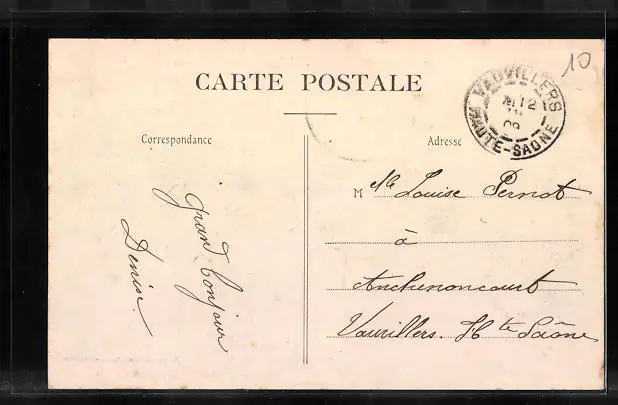 CARTE POSTALE
10
VAUVILLERS
12
09
HAUTE-SAONE
Correspondance
Adresse
grand bonjour
Denise.
Mlle Louise Pernot
à
Anchenoncourt
Vauvillers. Hte Saône